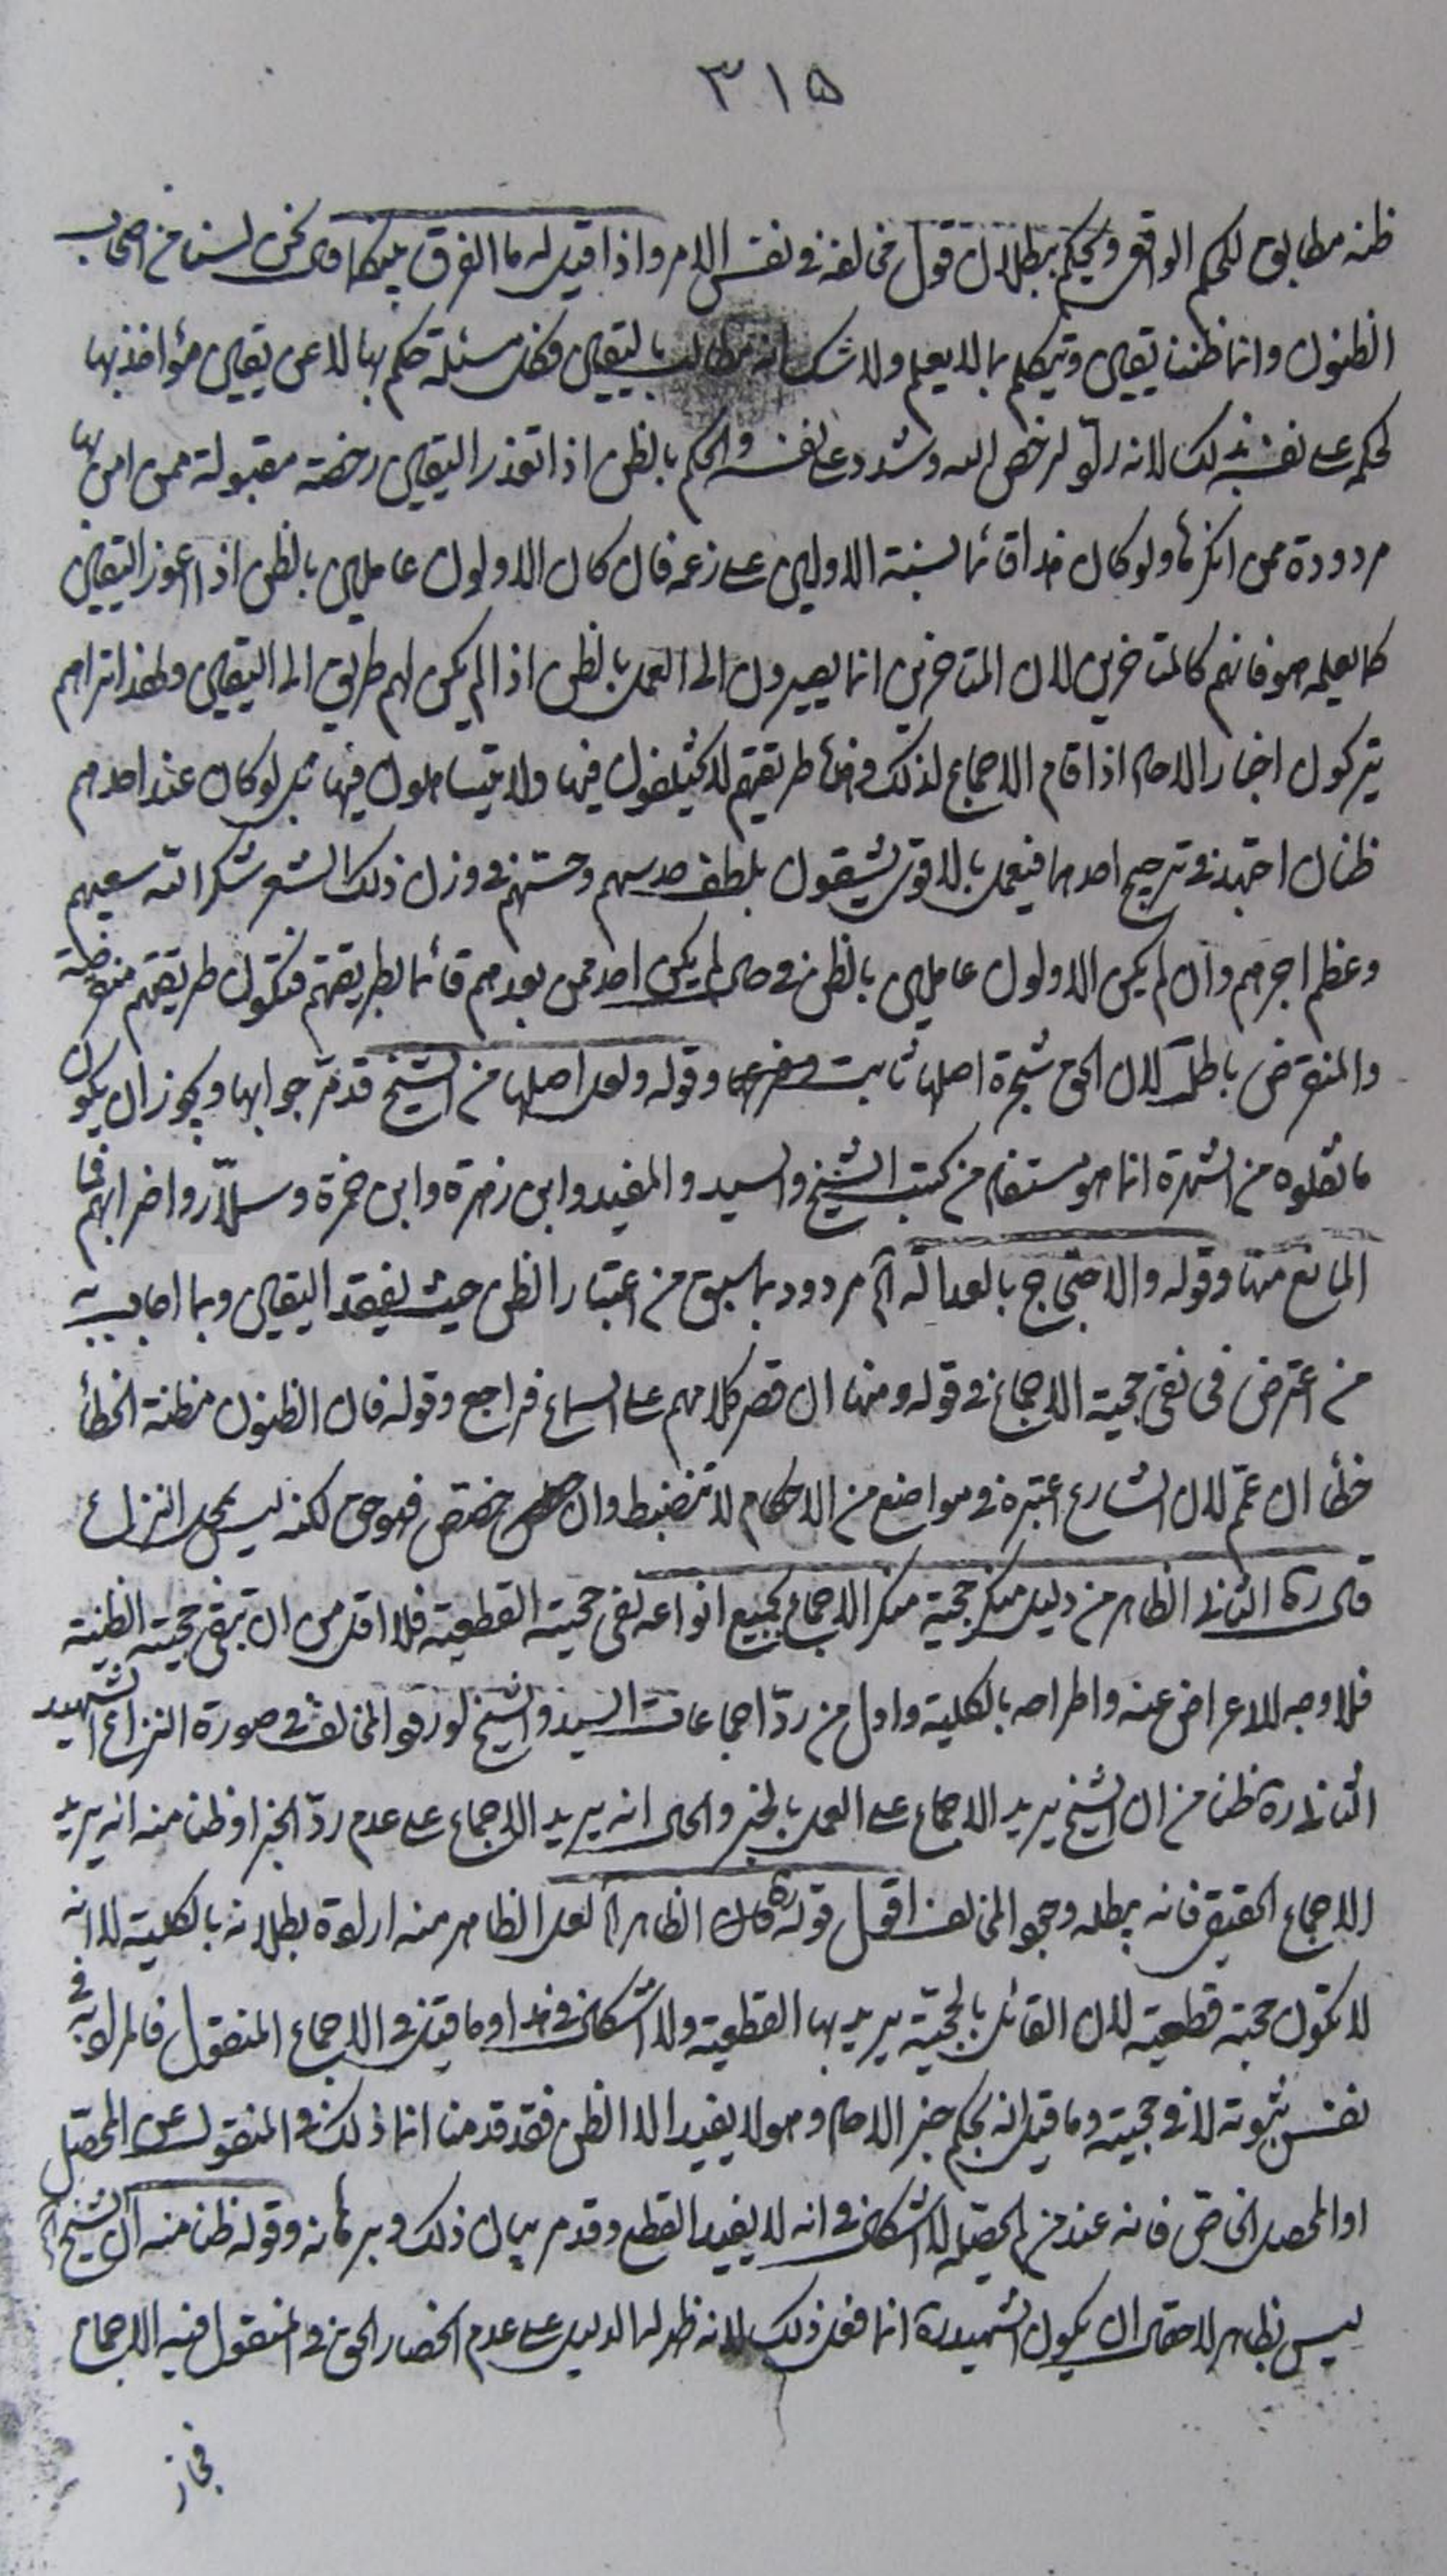 ٣١۵
ظنه مطابق للحكم الواقعى ويحكم ببطلان قول مخالفه فى نفس الامر واذا قيل له ما الفرق بينكما قال نحن لسنا من اصحاب
الظنون وانما ظننا يقين وتيكلم بما لا يعلم ولا شك انه مطالب باليقين وكل مسئلة حكم بها لا عن يقين مؤاخذ بها
لحكمه على نفسه بذلك لانه ردّ لرخص الله وشدد على نفسه والحكم بالظن اذا تعذر اليقين رخصة مقبولة ممن امن بها
مردودة ممن انكرها ولو كان هذا قائما بسنة الاولين على زعمه فان كان الاولون عاملين بالظن اذا اعوز اليقين
كما يعلمه هو فانهم كالمتاخرين لان المتاخرين انما يصيرون الى العمل بالظن اذا لم يكن لهم طريق الى اليقين ولهذا تراهم
يتركون اخبار الاحاد اذا قام الاجماع لذلك وهذه طريقتهم لا يختلفون فيها ولا يتساهلون فيها بل لو كان عند احدهم
ظنان اجتهد فى ترجيح احدهما فيعمل بالاقوى يشقون بلطف حدسهم وحسّهم فى وزن ذلك الشعر شكر الله سعيهم
وعظم اجرهم وان لم يكن الاولون عاملين بالظن فى حال لم يكن احد ممن بعدهم قائما بطريقتهم فتكون طريقتهم منقرضة
والمنقرض باطل لان الحق شجرة اصلها ثابت وفرعها وقوله ولعل اصلها من الشيخ قد مرّ جوابها ويجوز ان يكون
ما نقلوه من الشهرة انما هو مستفاد من كتب الشيخ والسيد والمفيد وابن زهرة وابن حمزة وسلّار واضرابهم فما
المانع منها وقوله والاحتجاج بالعدالة آه مردود بما سبق من اعتبار الظن حيث يفقد اليقين وبما اجاب به
من اعترض فى نفى حجية الاجماع فى قوله ومنها ان قصر كلامهم على السماع فراجع وقوله فان الظنون مظنة الخطأ
خطأ ان عمّ لان الشارع اعتبره فى مواضع من الاحكام لا تنضبط وان خصّص فهو حق لكنه ليس بمحل النزاع
قال ره الثانى الظاهر من دليل منكر حجية منكر الاجماع بجميع انواعه نفى حجيته القطعية فلا اقل من ان تبقى حجيته الظنية
فلا وجه للاعراض عنه واطراحه بالكلية واول من ردّ اجماعات السيد والشيخ لو رفع المخالف فى صورة النزاع الشهيد
الثانى ره ظنا من ان الشيخ يريد الاجماع على العمل بالخبر والحال انه يريد الاجماع على عدم ردّ الخبر او ظن منه انه يريد
الاجماع الحقيقى فانه يبطله وجود المخالف اقول قوله ره كان الظاهر آه لعل الظاهر منه ارادة بطلانه بالكلية لا انه
لا تكون حجية قطعية لان القائل بالحجية يريد بها القطعية ولا اشكال فى هذا وما قيل فى الاجماع المنقول فالمراد به فى
نفس ثبوته لا فى حجيته وما قيل انه بحكم خبر الاحاد وهو لا يفيد الا الظن فقد قدمنا انما ذلك فى المنقول عن المحصل
او المحصل الخاص فانه عند من لم يحصّله لا اشكال فى انه لا يفيد القطع وقد مر بيان ذلك وبرهانه وقوله ظن منه ان الشيخ آه
ليس بظاهر لاحتمال ان يكون الشهيد ره انما فعل ذلك لانه ظهر له الدليل على عدم انحصار الحق فى المنقول فيه الاجماع
فجاز